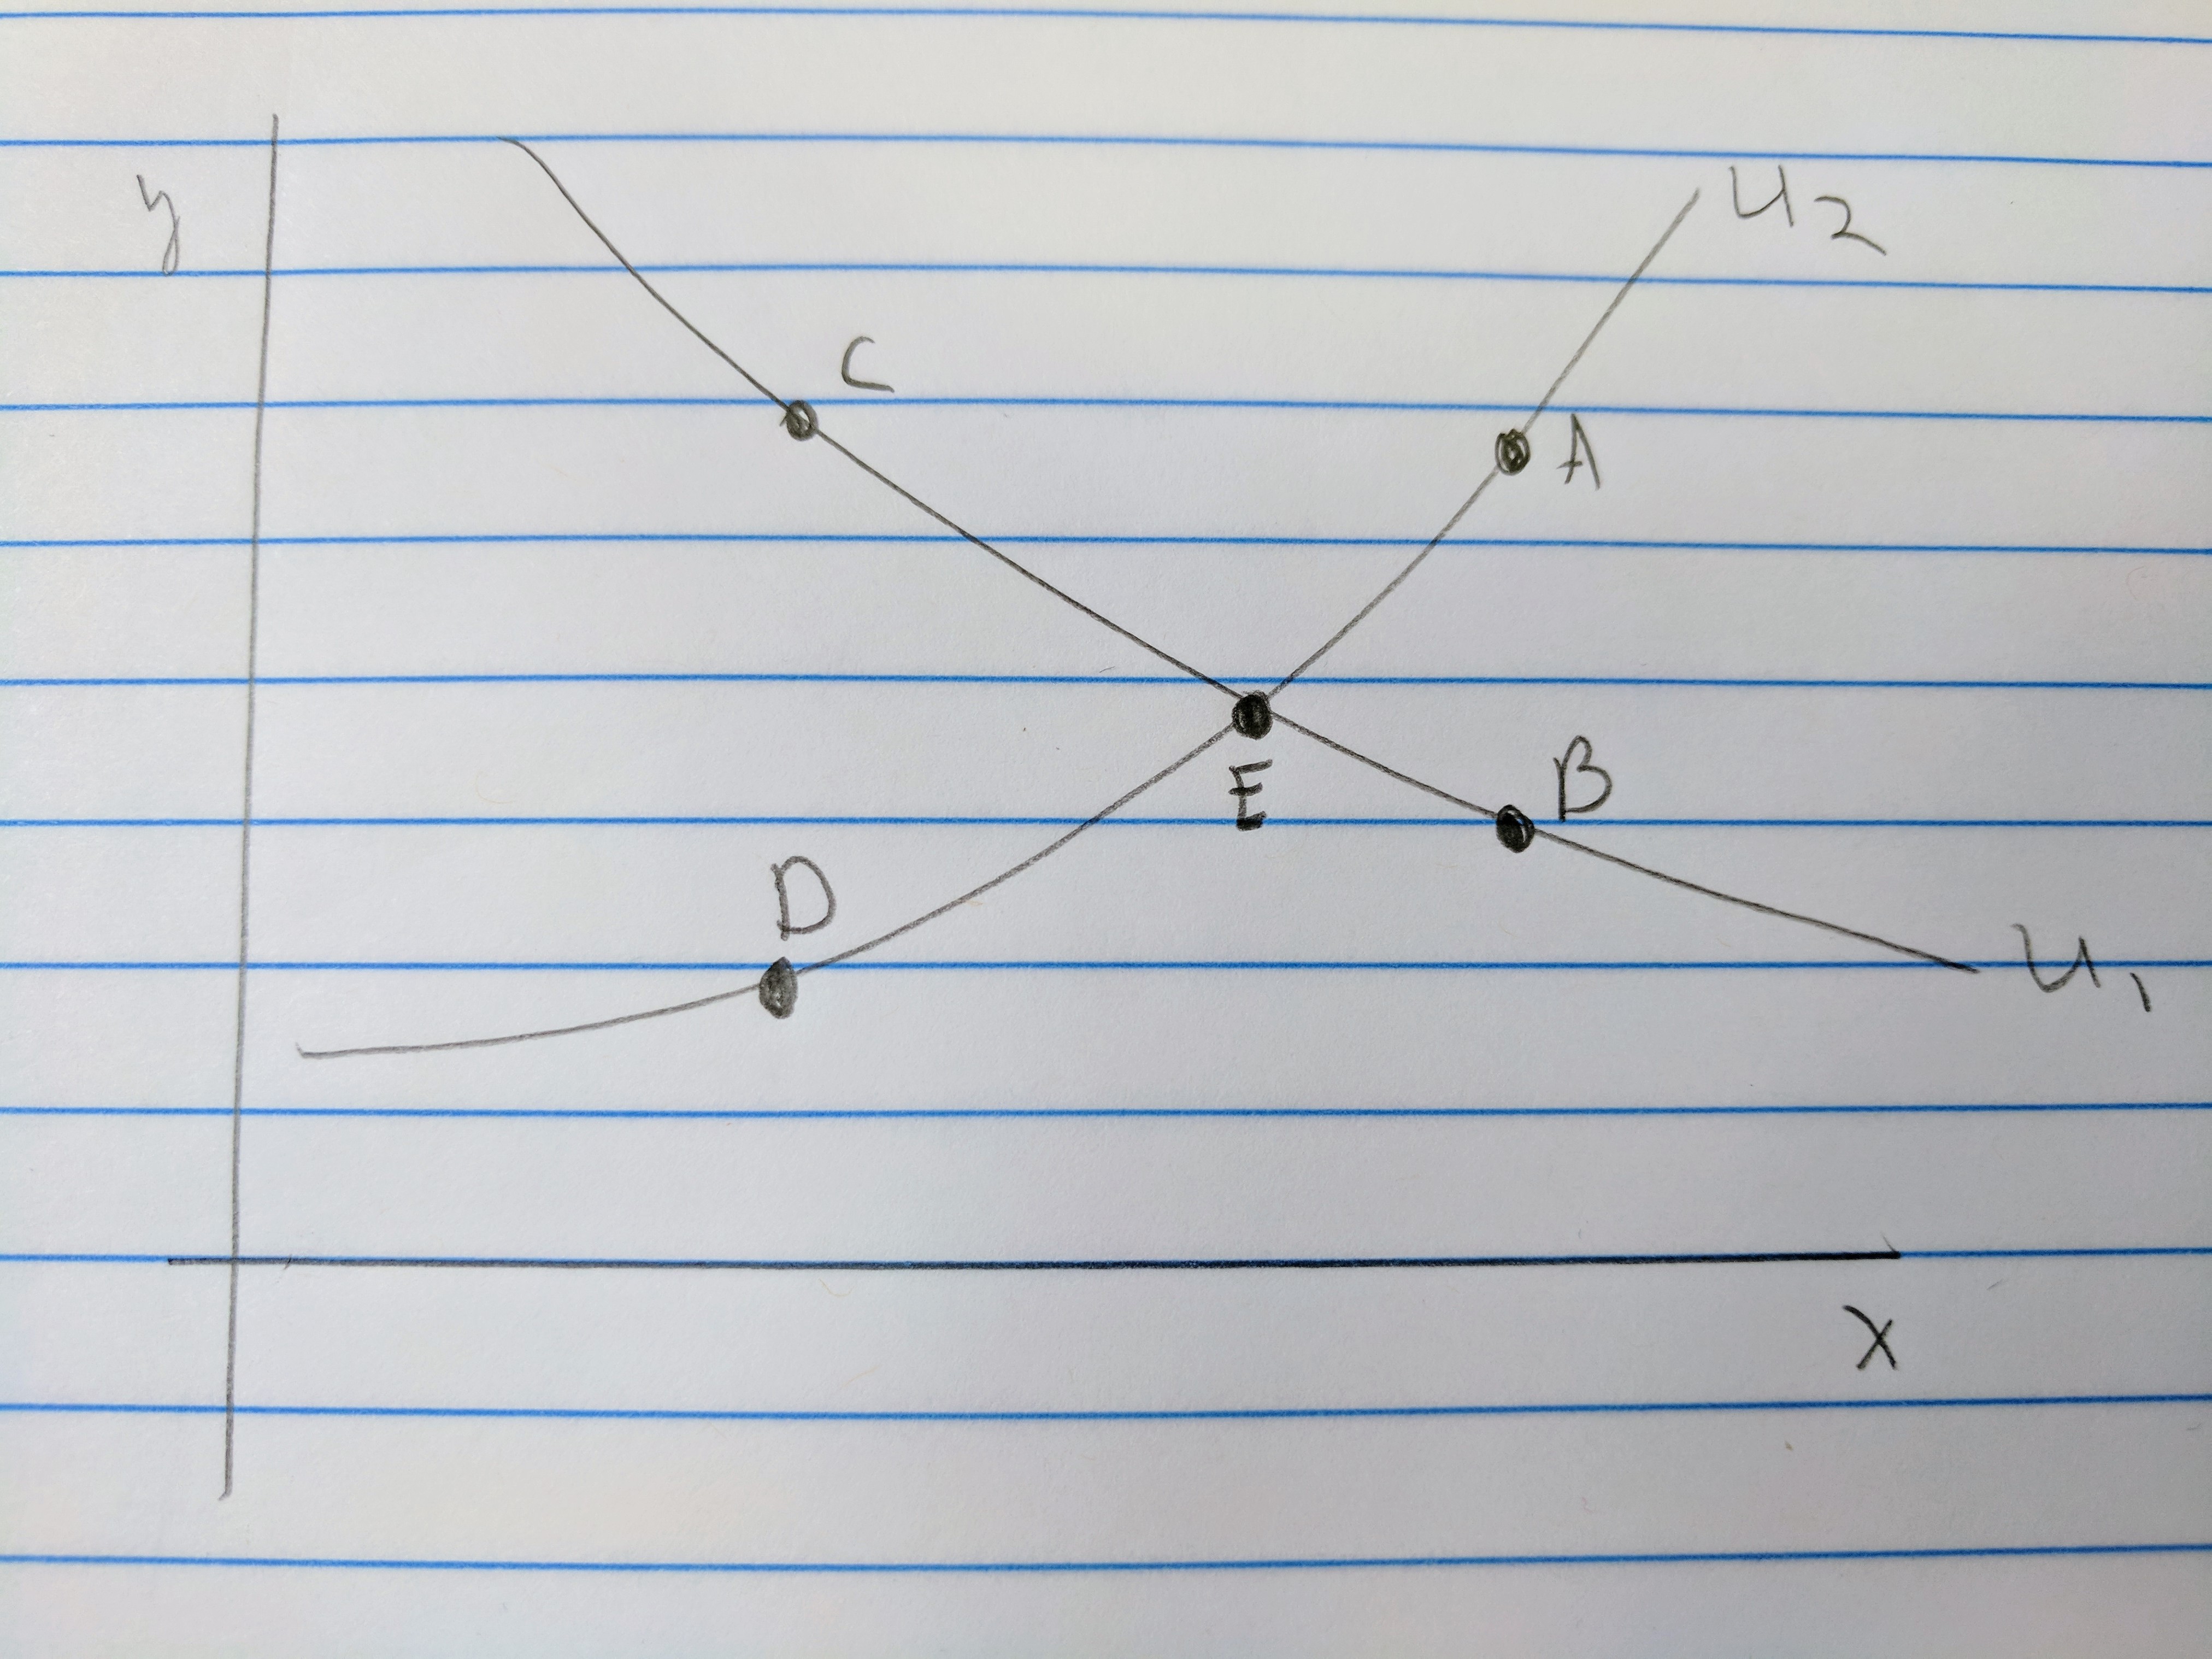 y
U2
C
A
E
B
D
U1
X